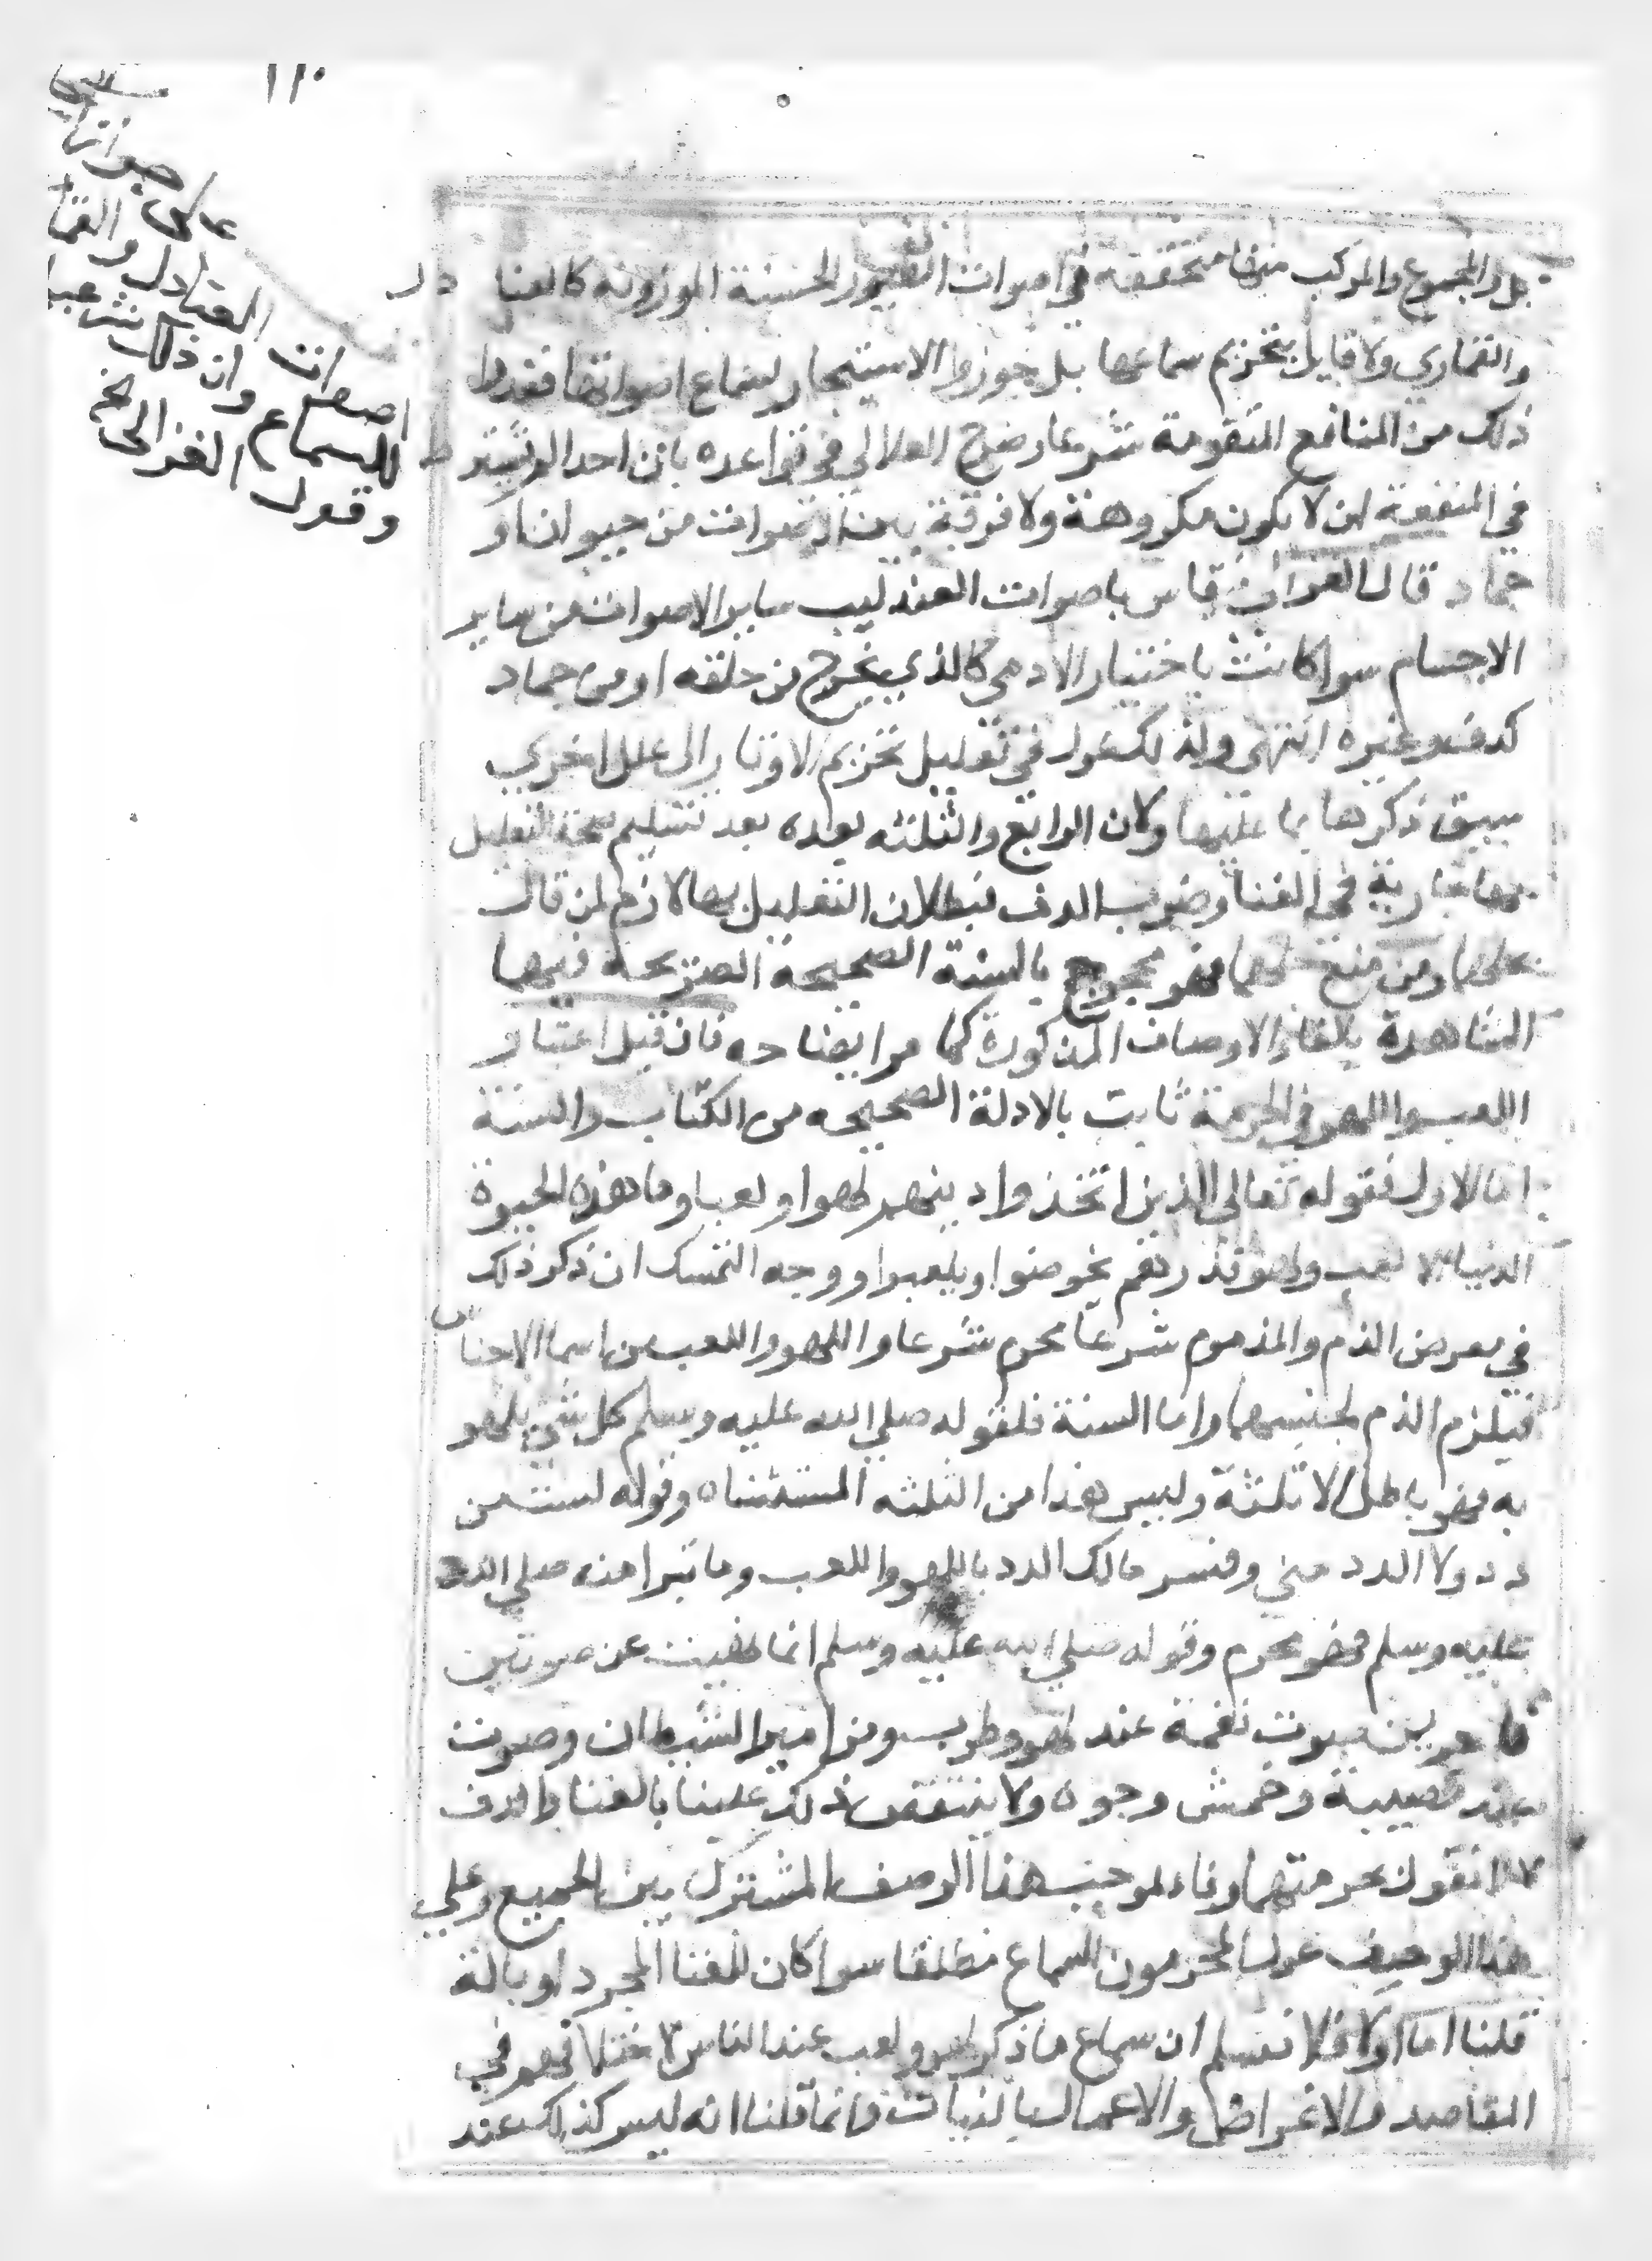 ١١٠
على جواز
اصوات العنادل و
للسماع وان ذلك
وقول الغزالي الخ
بل والمجموع والمركب منها متحققه في اصوات الطيور الحسنة الموزونه كالعنادل
والقماري ولا قايل بتحريم سماعها بل جوزوا الاستيجار لسماع اصواتها فعدوا
ذلك من المنافع المتقومة شرعا وصرح العلالي في قواعده بان احد الو
في المنفعة ان لا يكون مكروهة ولا فرق بين الاصوات من حيوان او
جماد قال الغزالي قاس باصوات العندليب ساير الاصوات من ساير
الاجسام سوا كانت باختيار الادمي كالذي يخرج من حلقه او من جماد
كدف وغيره انتهى ولذلك عول في تعليل تحريم الاوتار الى علل اخرى
سبق ذكرها بما عليها وكان الرابع والثلثه بعده بعد تسليم صحة التعليل
بها جارية في الغنا وضرب الدف فبطلان التعليل بها لازم لمن قال
بحلها ومن منع حلهما فهو محجوج بالسنة الصحيحة الصريحة فيهما
الشاهدة بالغاء الاوصاف المذكورة كما مر ايضاحه فان قيل اعتبار
اللعب واللهو في الحرمة ثابت بالادلة الصحيحه من الكتاب والسنة
اما الاول فقوله تعالى الذين اتخذوا دينهم لهوا ولعبا وما هذه الحيوة
الدنيا الا لعب ولهو فذرهم يخوضوا ويلعبوا ووجه التمسك ان ذكر ذلك
في معرض الذم والمذموم شرعا محرم شرعا واللهو واللعب من اسما الاجناس
فيلزم الذم لجنسهما واما السنة فلقوله صلي الله عليه وسلم كل شي يلهو
به فهو باطل الا ثلثة وليس هذا من الثلثه المستثناه وقوله لست من
دد ولا الدد مني وفسر مالك الدد باللهو واللعب وما تبرا منه صلي الله
عليه وسلم فهو محرم وقوله صلي الله عليه وسلم انما نهيت عن صوتين
فاجرين صوت نغمة عند لهو وطرب ومزامير الشيطان وصوت
عند مصيبة وخمش وجوه ولا ينتقض ذلك علينا بالغنا والدف
لانا نقول بحرمتهما وفاء لموجب هذا الوصف المشترك بين الجميع وعلي
هذا الوصف عول المحرمون للسماع مطلقا سوا كان للغنا المجرد او بالة
قلنا اما اولا فلا نسلم ان سماع ما ذكر لهو ولعب عند الناس لاختلافهم في
المقاصد والاغراض والاعمال بالنيات وانما قلنا انه ليس كذلك عند